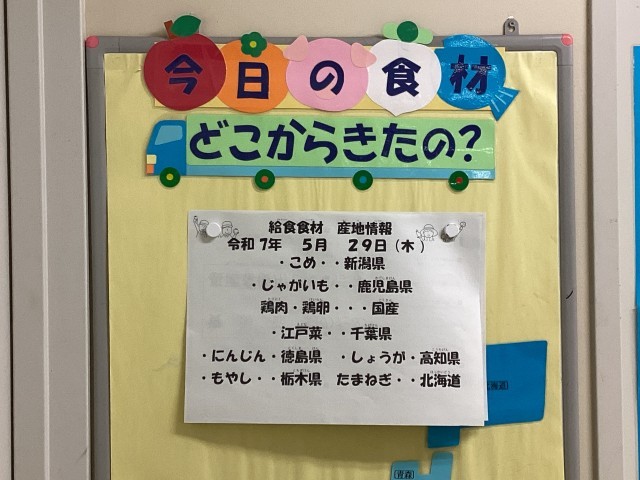 今日の食材
どこからきたの?
給食食材 産地情報
令和7年 5月 29日(木)
・こめ・・新潟県
・じゃがいも・・鹿児島県
鶏肉・鶏卵・・・国産
・江戸菜・・千葉県
・にんじん・徳島県 ・しょうが・高知県
・もやし・・栃木県 たまねぎ・・北海道
海道
青森